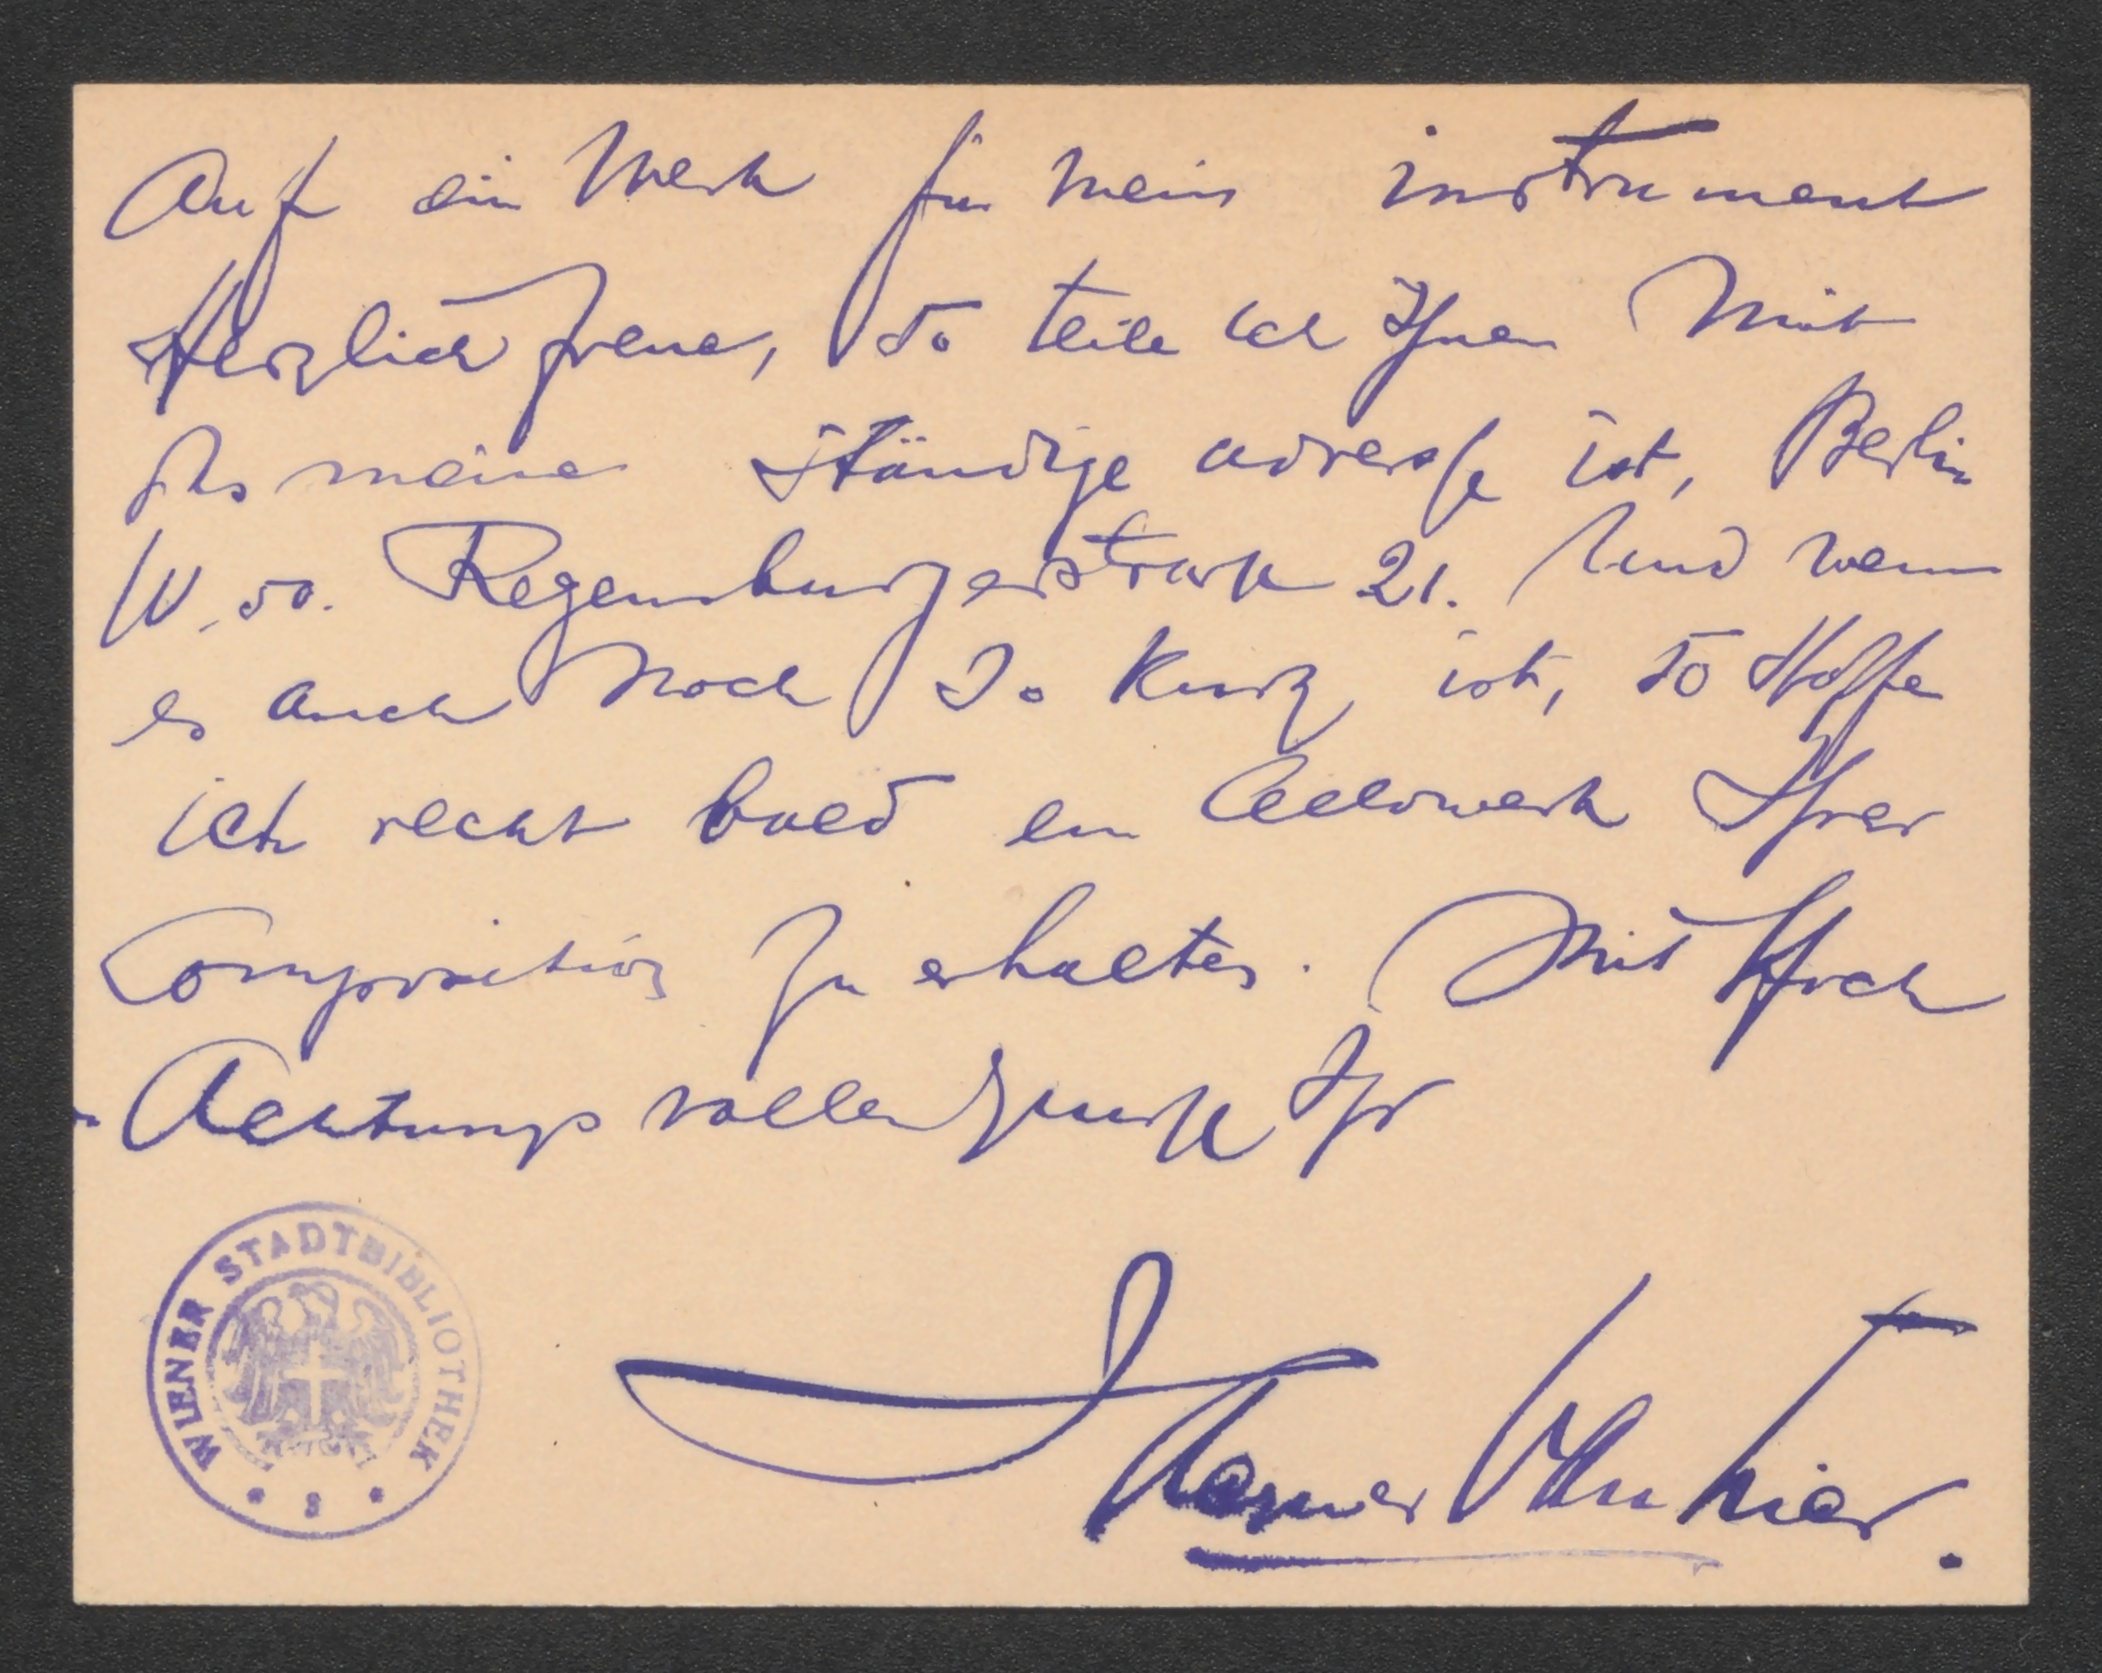 Auf ein Werk für mein instrument
Herzlich freue, so teile ich Ihnen Mit
das meine ständige adresse ist, Berlin
W. 50. Regensburgerstrasse 21. Und wenn
es auch Noch So Kurz ist, so Hoffe
ich recht bald ein Cellowerk Ihrer
Composition zu erhalten. Mit Hoch
Achtungsvollen Grusse Ihr
WIENER STADTBIBLIOTHEK